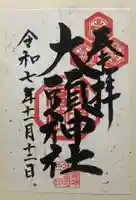 奉拝
大頭神社
令和七年十一月十二日